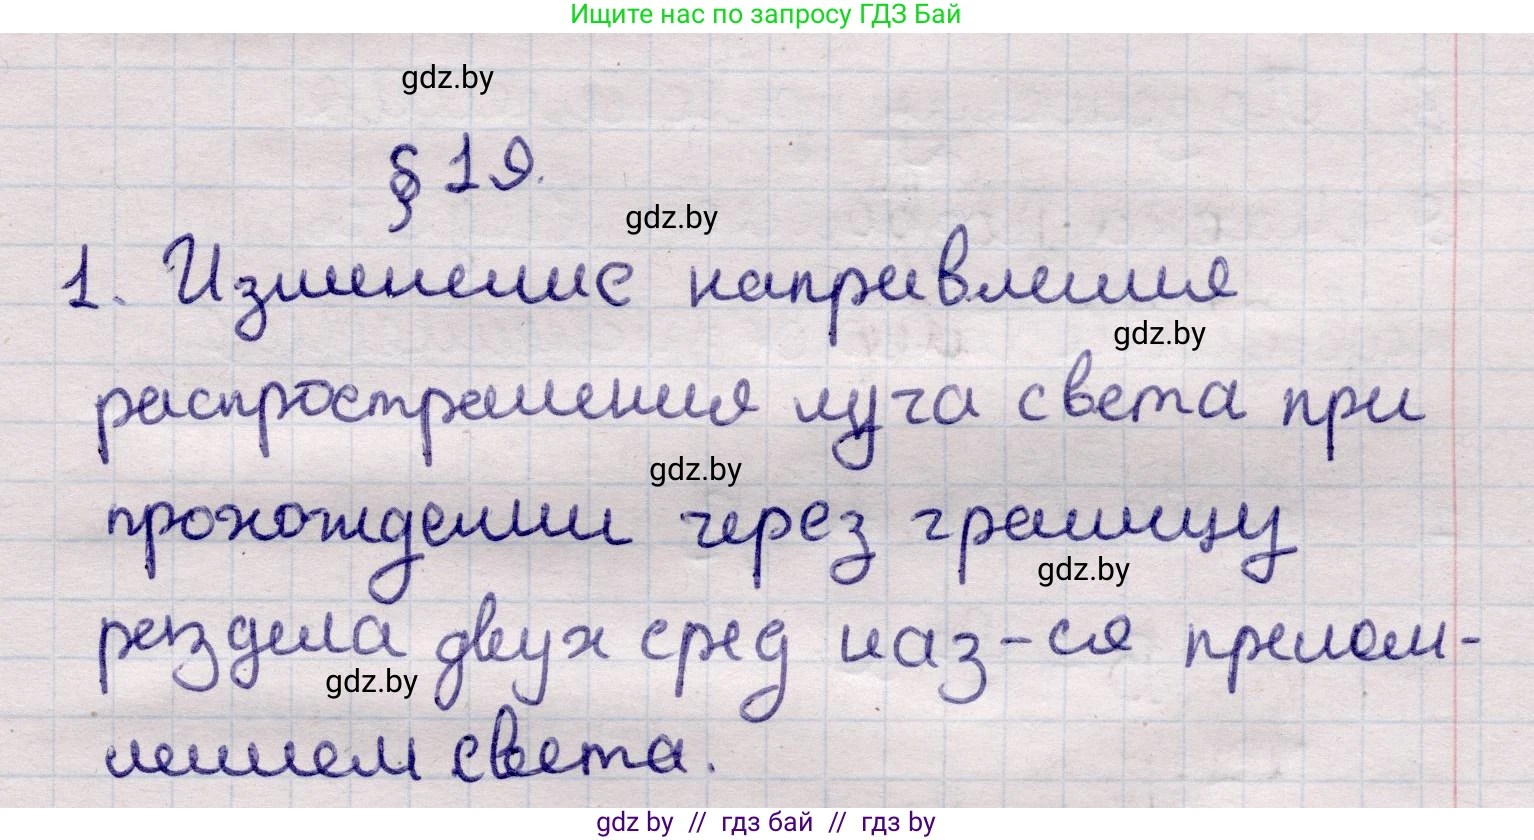 Ищите нас по запросу ГДЗ Бай
gdz.by
§ 19.
gdz.by
1. Изменение направления
gdz.by
распространения луча света при
gdz.by
прохождении через границу
gdz.by
раздела двух сред наз-ся прелом-
gdz.by
лением света.
gdz by // гдз бай // гдз by